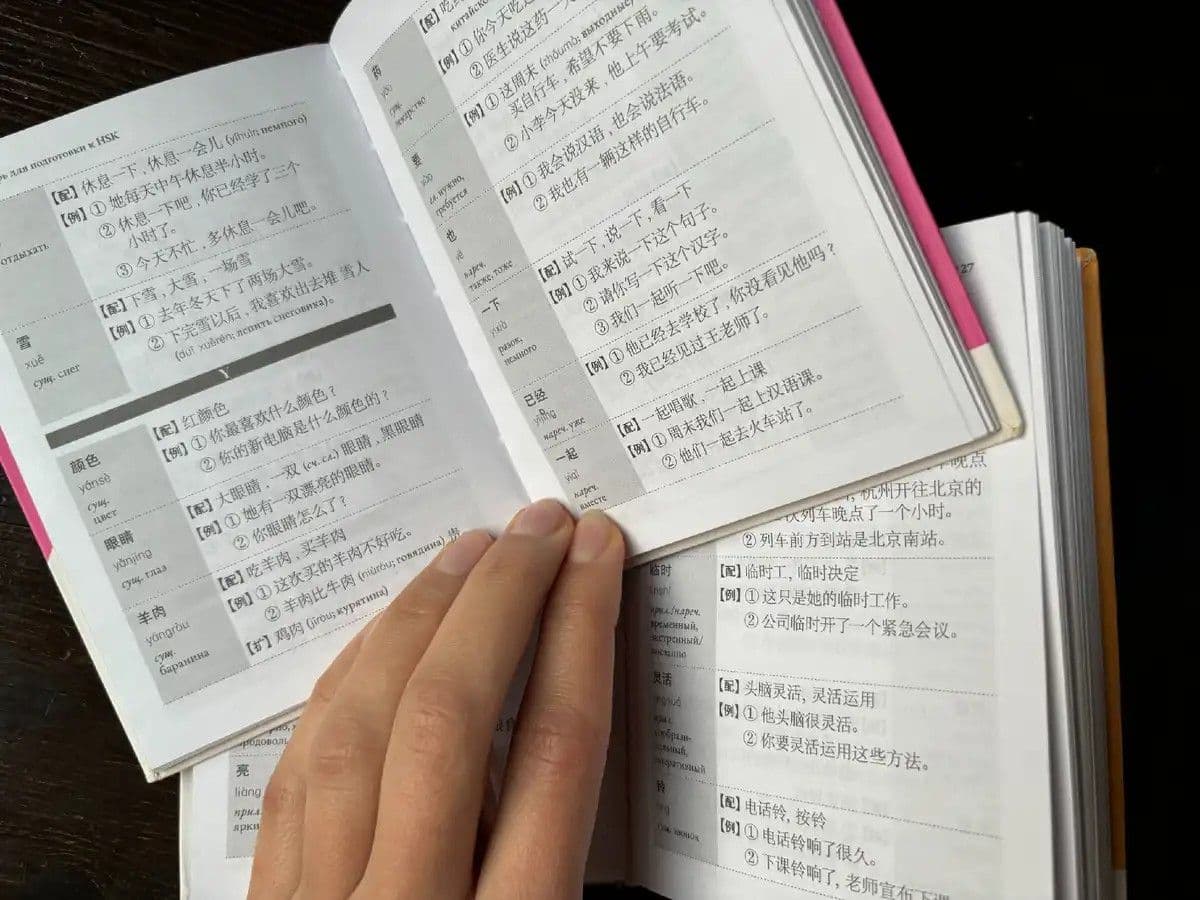 для подготовки к HSK
отдыхать
【配】休息一下，休息一会儿 (yíhuìr; немного)
【例】① 她每天中午休息半小时。
② 休息一下吧，你已经学了三个
小时了。
③ 今天不忙，多休息一会儿吧。
雪
xuě
сущ. снег
【配】下雪，大雪，一场雪
【例】① 去年冬天下了两场大雪。
② 下完雪以后，我喜欢出去堆雪人
(duī xuěrén; лепить снеговика)。
Y
颜色
yánsè
сущ.
цвет
【配】红颜色
【例】① 你最喜欢什么颜色？
② 你的新电脑是什么颜色的？
眼睛
yǎnjing
сущ. глаз
【配】大眼睛，一双 (сч. сл.) 眼睛，黑眼睛
【例】① 她有一双漂亮的眼睛。
② 你眼睛怎么了？
羊肉
yángròu
сущ.
баранина
【配】吃羊肉，买羊肉
【例】① 这次买的羊肉不好吃。
② 羊肉比牛肉 (niúròu; говядина) 贵
【扩】鸡肉 (jīròu; курятина)
药
yào
сущ.
лекарство
【配】
【例】① 你今天吃
② 医生说这药一天
要
yào
гл. нужно,
требуется
【例】① 这周末 (zhōumò; выходные)
买自行车，希望不要下雨。
② 小李今天没来，他上午要考试。
也
yě
нареч.
также, тоже
【例】① 我会说汉语，也会说法语。
② 我也有一辆这样的自行车。
一下
yíxià
разок,
немного
【配】试一下，说一下，看一下
【例】① 我来说一下这个句子。
② 请你写一下这个汉字。
③ 我们一起听一下吧。
已经
yǐjīng
нареч. уже
【例】① 他已经去学校了，你没看见他吗？
② 我已经见过王老师了。
一起
yìqǐ
нареч.
вместе
【配】一起唱歌，一起上课
【例】① 周末我们一起上汉语课。
② 他们一起去火车站了。
27
晚点
杭州开往北京的
次列车晚点了一个小时。
② 列车前方到站是北京南站。
临时
прил./нареч.
【配】临时工, 临时决定
【例】① 这只是她的临时工作。
② 公司临时开了一个紧急会议。
灵活
【配】头脑灵活, 灵活运用
【例】① 他头脑很灵活。
② 你要灵活运用这些方法。
铃
сущ. звонок
【配】电话铃, 按铃
【例】① 电话铃响了很久。
② 下课铃响了, 老师宣布下课
亮
liàng
прил.